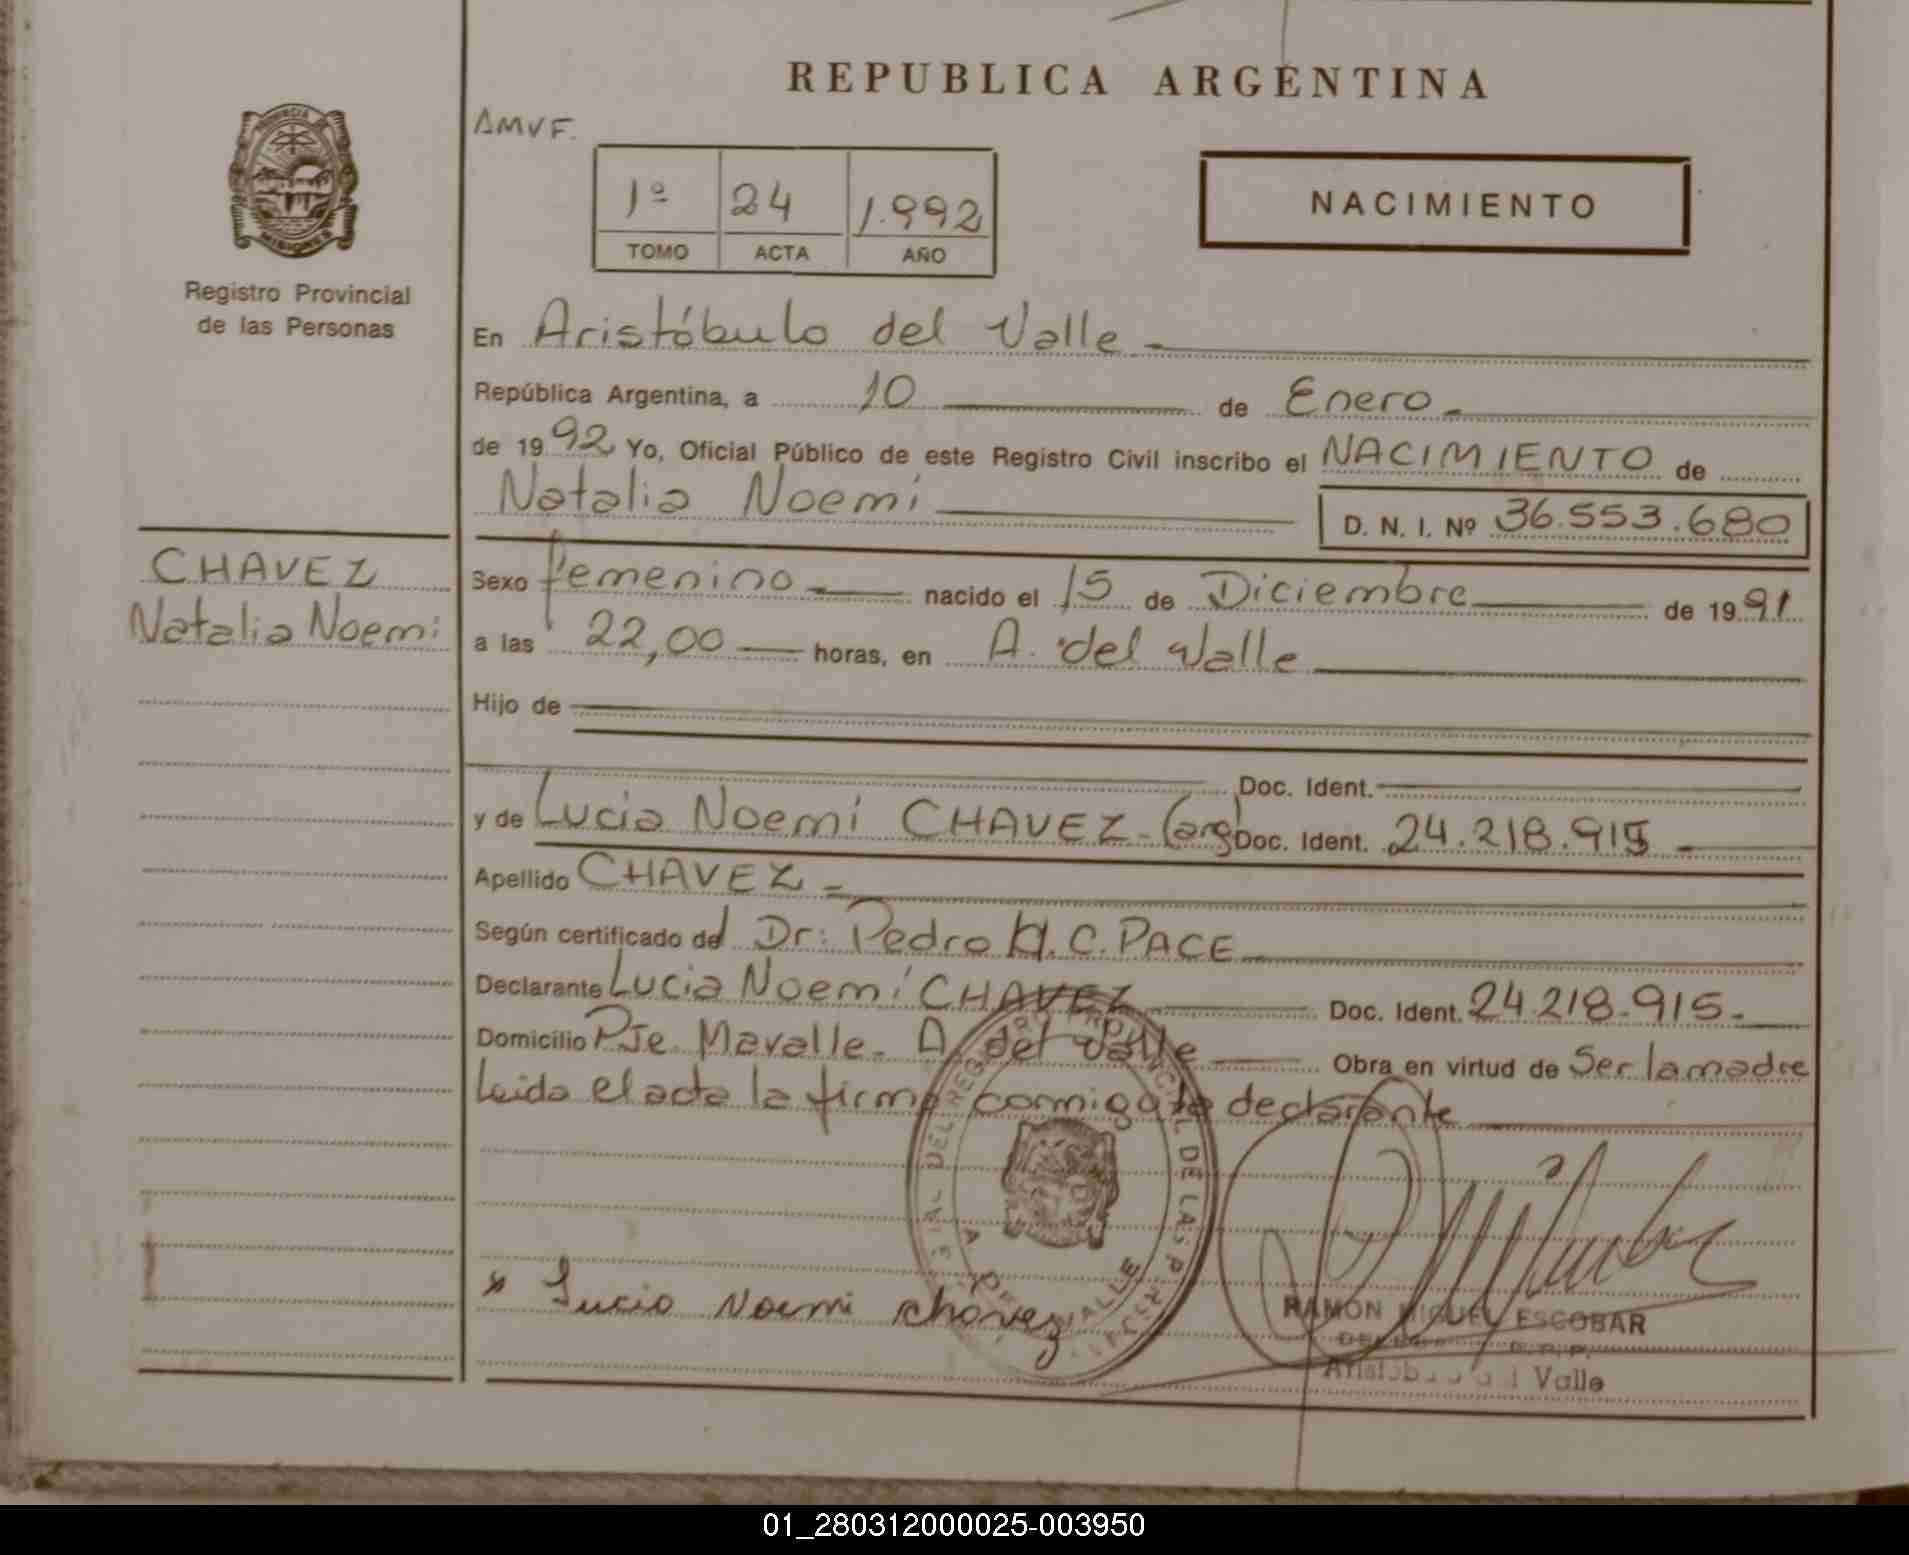 REPUBLICA ARGENTINA
AMVF.
1º 24 1.992
TOMO ACTA AÑO
NACIMIENTO
PROVINCIA DE
MISIONES
Registro Provincial
de las Personas
En Aristóbulo del Valle
República Argentina, a 10 de Enero
de 1992 Yo, Oficial Público de este Registro Civil inscribo el NACIMIENTO de
Natalia Noemi D. N. I. Nº 36.553.680
CHAVEZ
Natalia Noemi
Sexo femenino nacido el 15 de Diciembre de 1991
a las 22,00 horas, en A. del Valle
Hijo de
Doc. Ident.
y de Lucia Noemi CHAVEZ - (arg) Doc. Ident. 24.218.915
Apellido CHAVEZ
Según certificado del Dr: Pedro H. C. PACE
Declarante Lucia Noemi CHAVEZ Doc. Ident. 24.218.915.
Domicilio PJe. Mavalle. A. del Valle Obra en virtud de Ser la madre
Leida el acta la firma conmigo la declarante
DEL REGISTRO PROVINCIAL DE LAS PERSONAS
x Lucia Noemi chavez
RAMON MIGUEL ESCOBAR
Valle
01_280312000025-003950